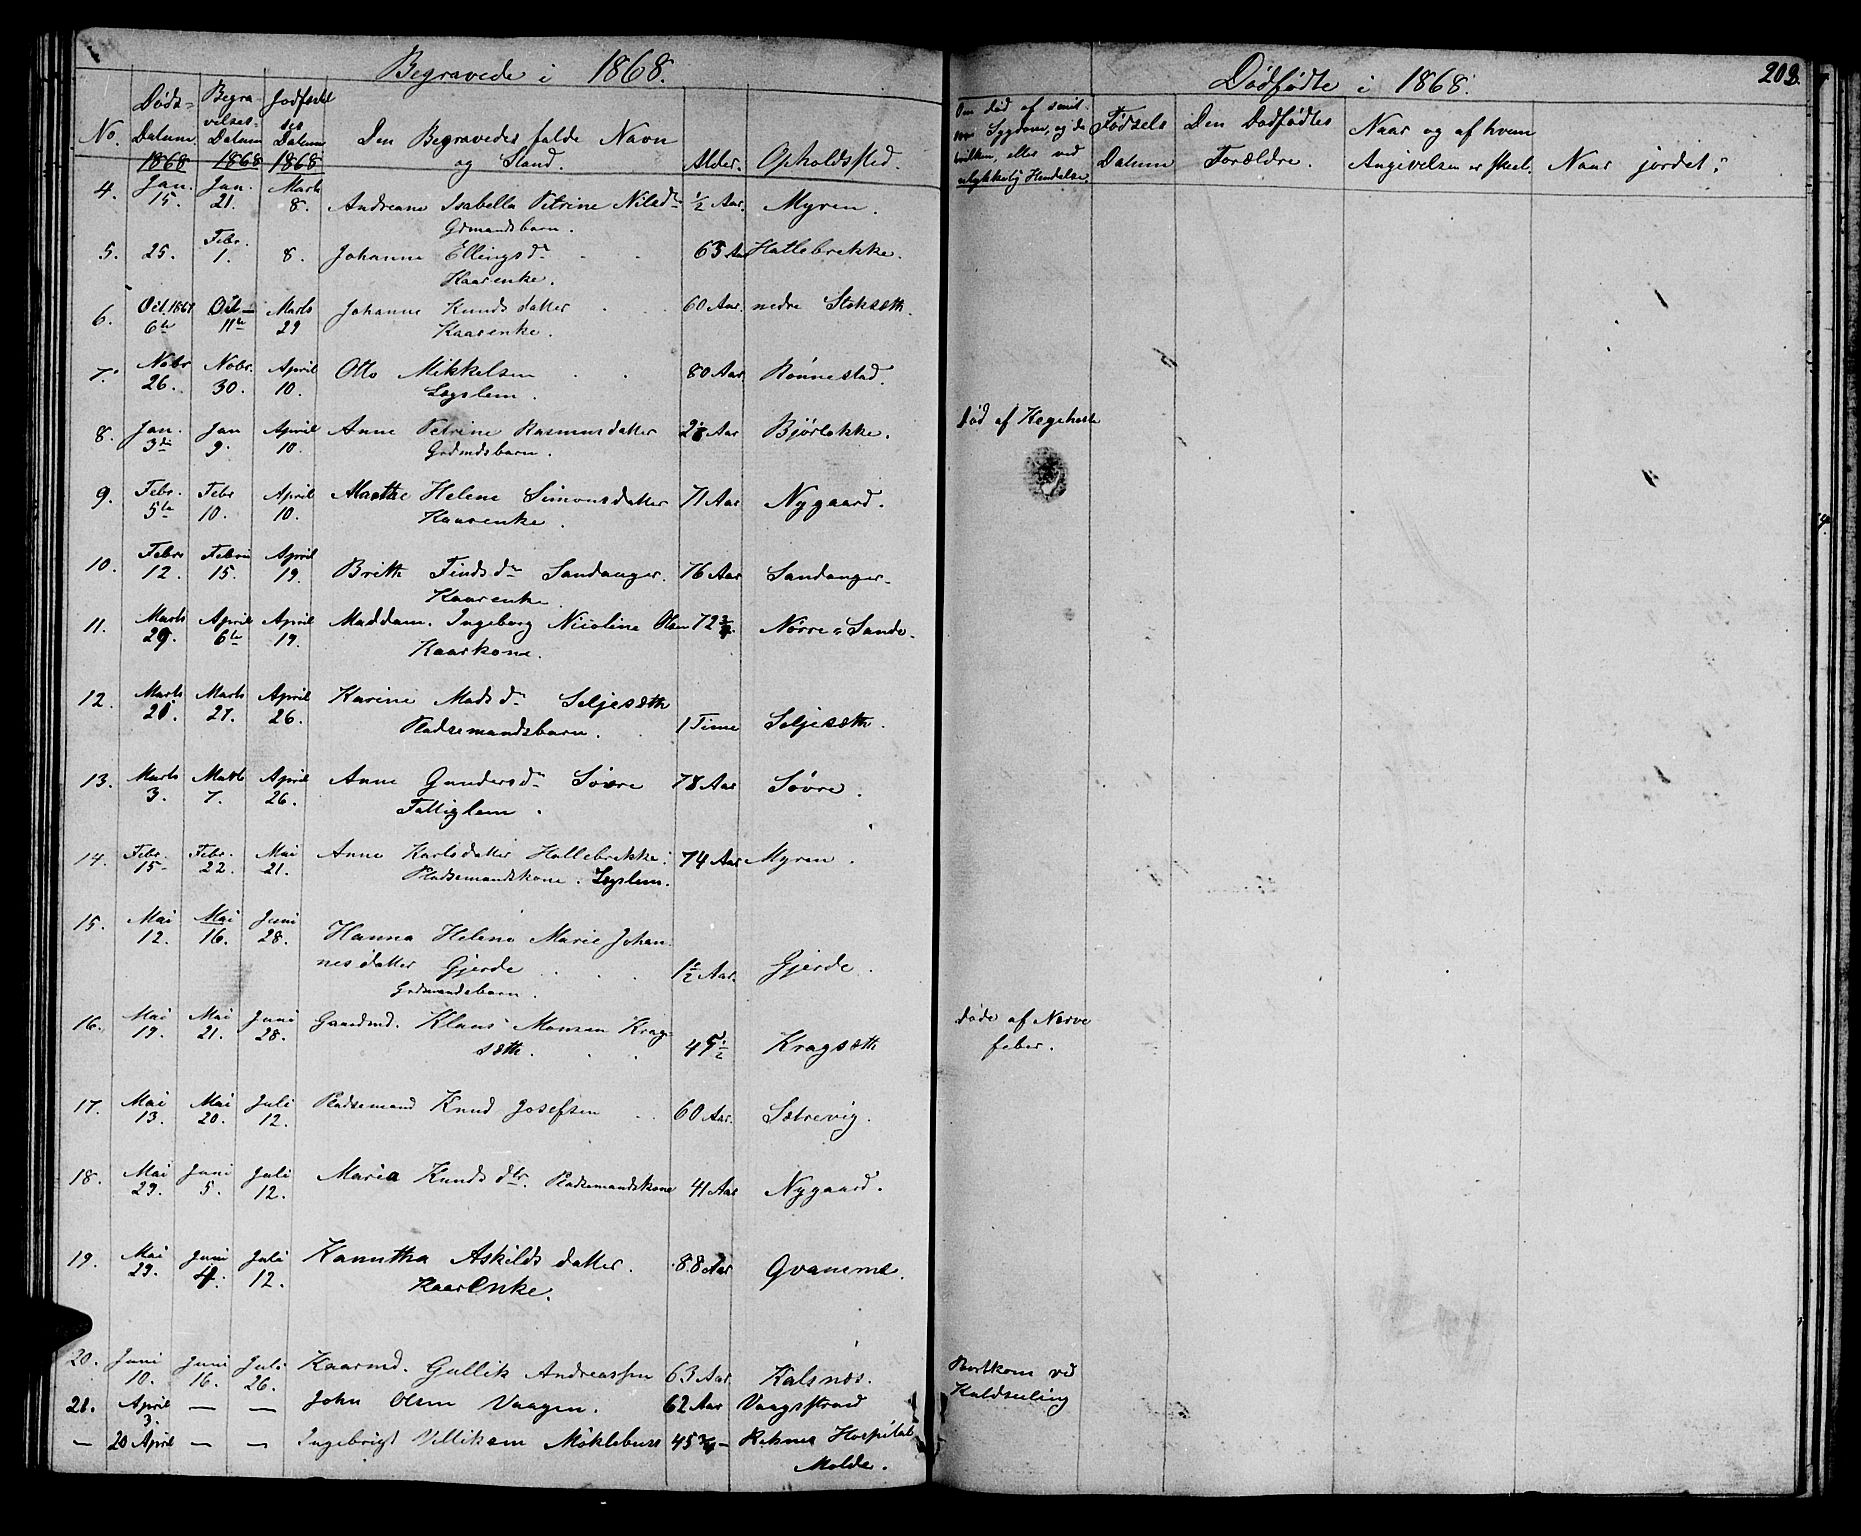 Begravede i 1868.
No. Døds-Datum 1868 Begravelses-Datum 1868 Jordfæstelses Datum 1868 Den Begravedes fulde Navn og Stand. Alder. Opholdssted.
4. Jan. 15. Jan. 21. Marts 8. Andreane Isabella Petrine Nilsdr ½ Aar. Myren.
Grdmandsbarn.
5. 25. Febr. 1. 8. Johanne Ellingsdr 63 Aar Hallebrekke.
Kaarenke.
6. Oct. 1867 6te Oct 11te Marts 29 Johanne Knudsdatter 60 Aar nedre Stoksæth.
Kaarenke.
7. Nobr 26. Nobr. 30. April 10. Otto Mikkelsen 80 Aar Rønnestad.
Lægslem.
8. Jan. 3die Jan 9. April 10. Anne Petrine Rasmusdatter Aar Bjørlokke. Død af Kighoste
Grdmdsbarn.
9. Febr. 5te Febr 10. April 10. Marthe Helene Simonsdatter 71 Aar Nygaard.
Kaarenke.
10. Febr 12. Febr 15. April 19. Brithe Findsdr Sandanger. 76 Aar Sandanger.
Kaarenke
11. Marts 29. April 6te April 19. Maddam. Ingeborg Nicoline Olsen 72 Nørre Sande.
Kaarkone.
12. Marts 20. Marts 27. April 26. Karine Madsdr Seljesæth
Pladsemandsbarn. 1 Time Seljesæth.
13. Marts 3. Marts 7. April 26. Anne Gundersdr Søvre 78 Aar Søvre.
Fattiglem.
14. Febr. 15. Febr. 22. Mai 21. Anne Karlsdatter Hallebrekke. 74 Aar Myren.
Pladsemandskone. Lægslem.
15. Mai 12. Mai 16. Juni 28. Hanna Helene Marie Johan-
nesdatter Gjerde 1½ Aar. Gjerde.
Grdmandsbarn.
16. Mai 19. Mai 21. Juni 28. Gaardmd. Klaus Monsen Krag-
sæth. 45½ Kragsæth Døde af Nerve
feber.
17. Mai 13. Mai 20. Juli 12. Pladsemand Knud Josefsen 60 Aar. Sætrevig.
18. Mai 29. Juni 5. Juli 12. Maria Knudsdtr. Pladsemandskone 41 Aar Nygaard.
19. Mai 29. Juni 4. Juli 12. Kanutha Askildsdatter. 88 Aar Qvamme.
KaarEnke.
20. Juni 10. Juni 16. Juli 26. Kaarmd. Gullik Andreassen 63 Aar. Kalsnæs. Bortkom ved
Kuldseiling
21. April 3. — — John Olsen Vaagen. 62 Aar Vaagstrand
— 20 April — — Ingebrigt Villiksen Møklebust 45¾ Reknes Hospital
Molde.
Dødfødte i 1868. 203.
Om død af smit-
som Sygdom, og da
hvilken, eller ved
ulykkelig Hændelse.
Fødsels Datum Den Dødfødtes Forældre. Naar og af hvem Angivelsen er skeet. Naar jordet.